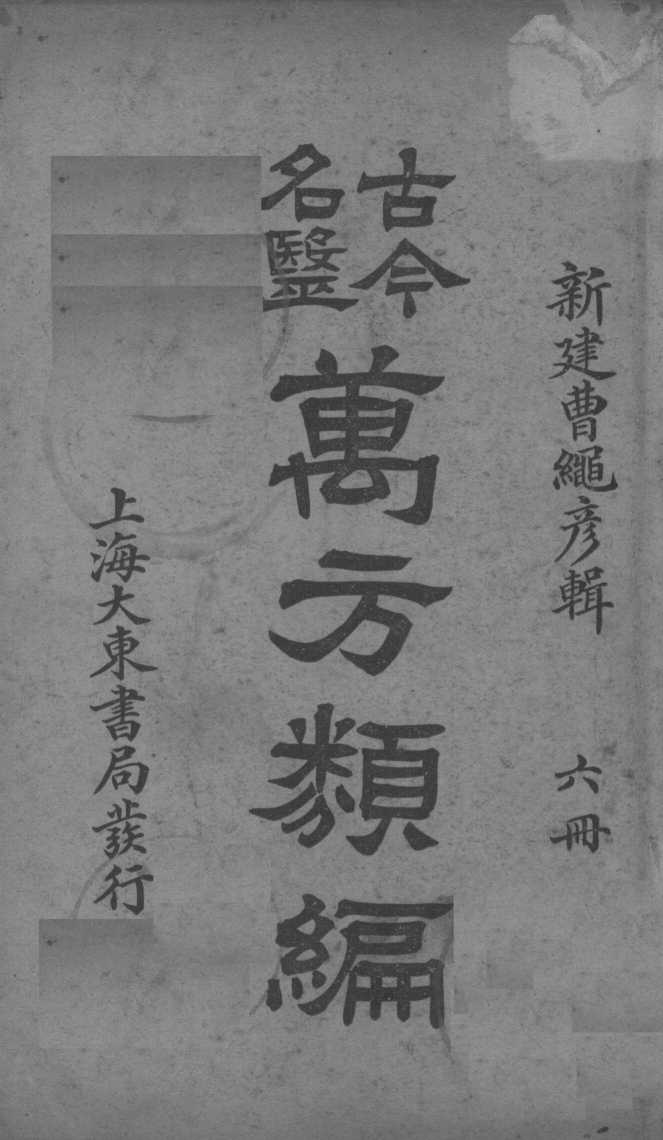 新建曹繩彦輯　六冊
古今
名醫
萬方類編
上海大東書局發行